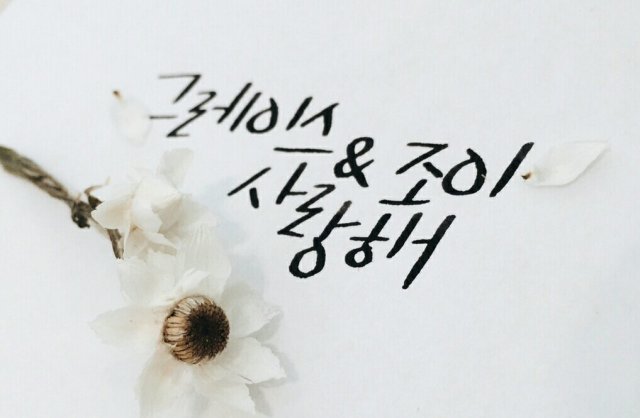 그레이스
& 조이
사랑해